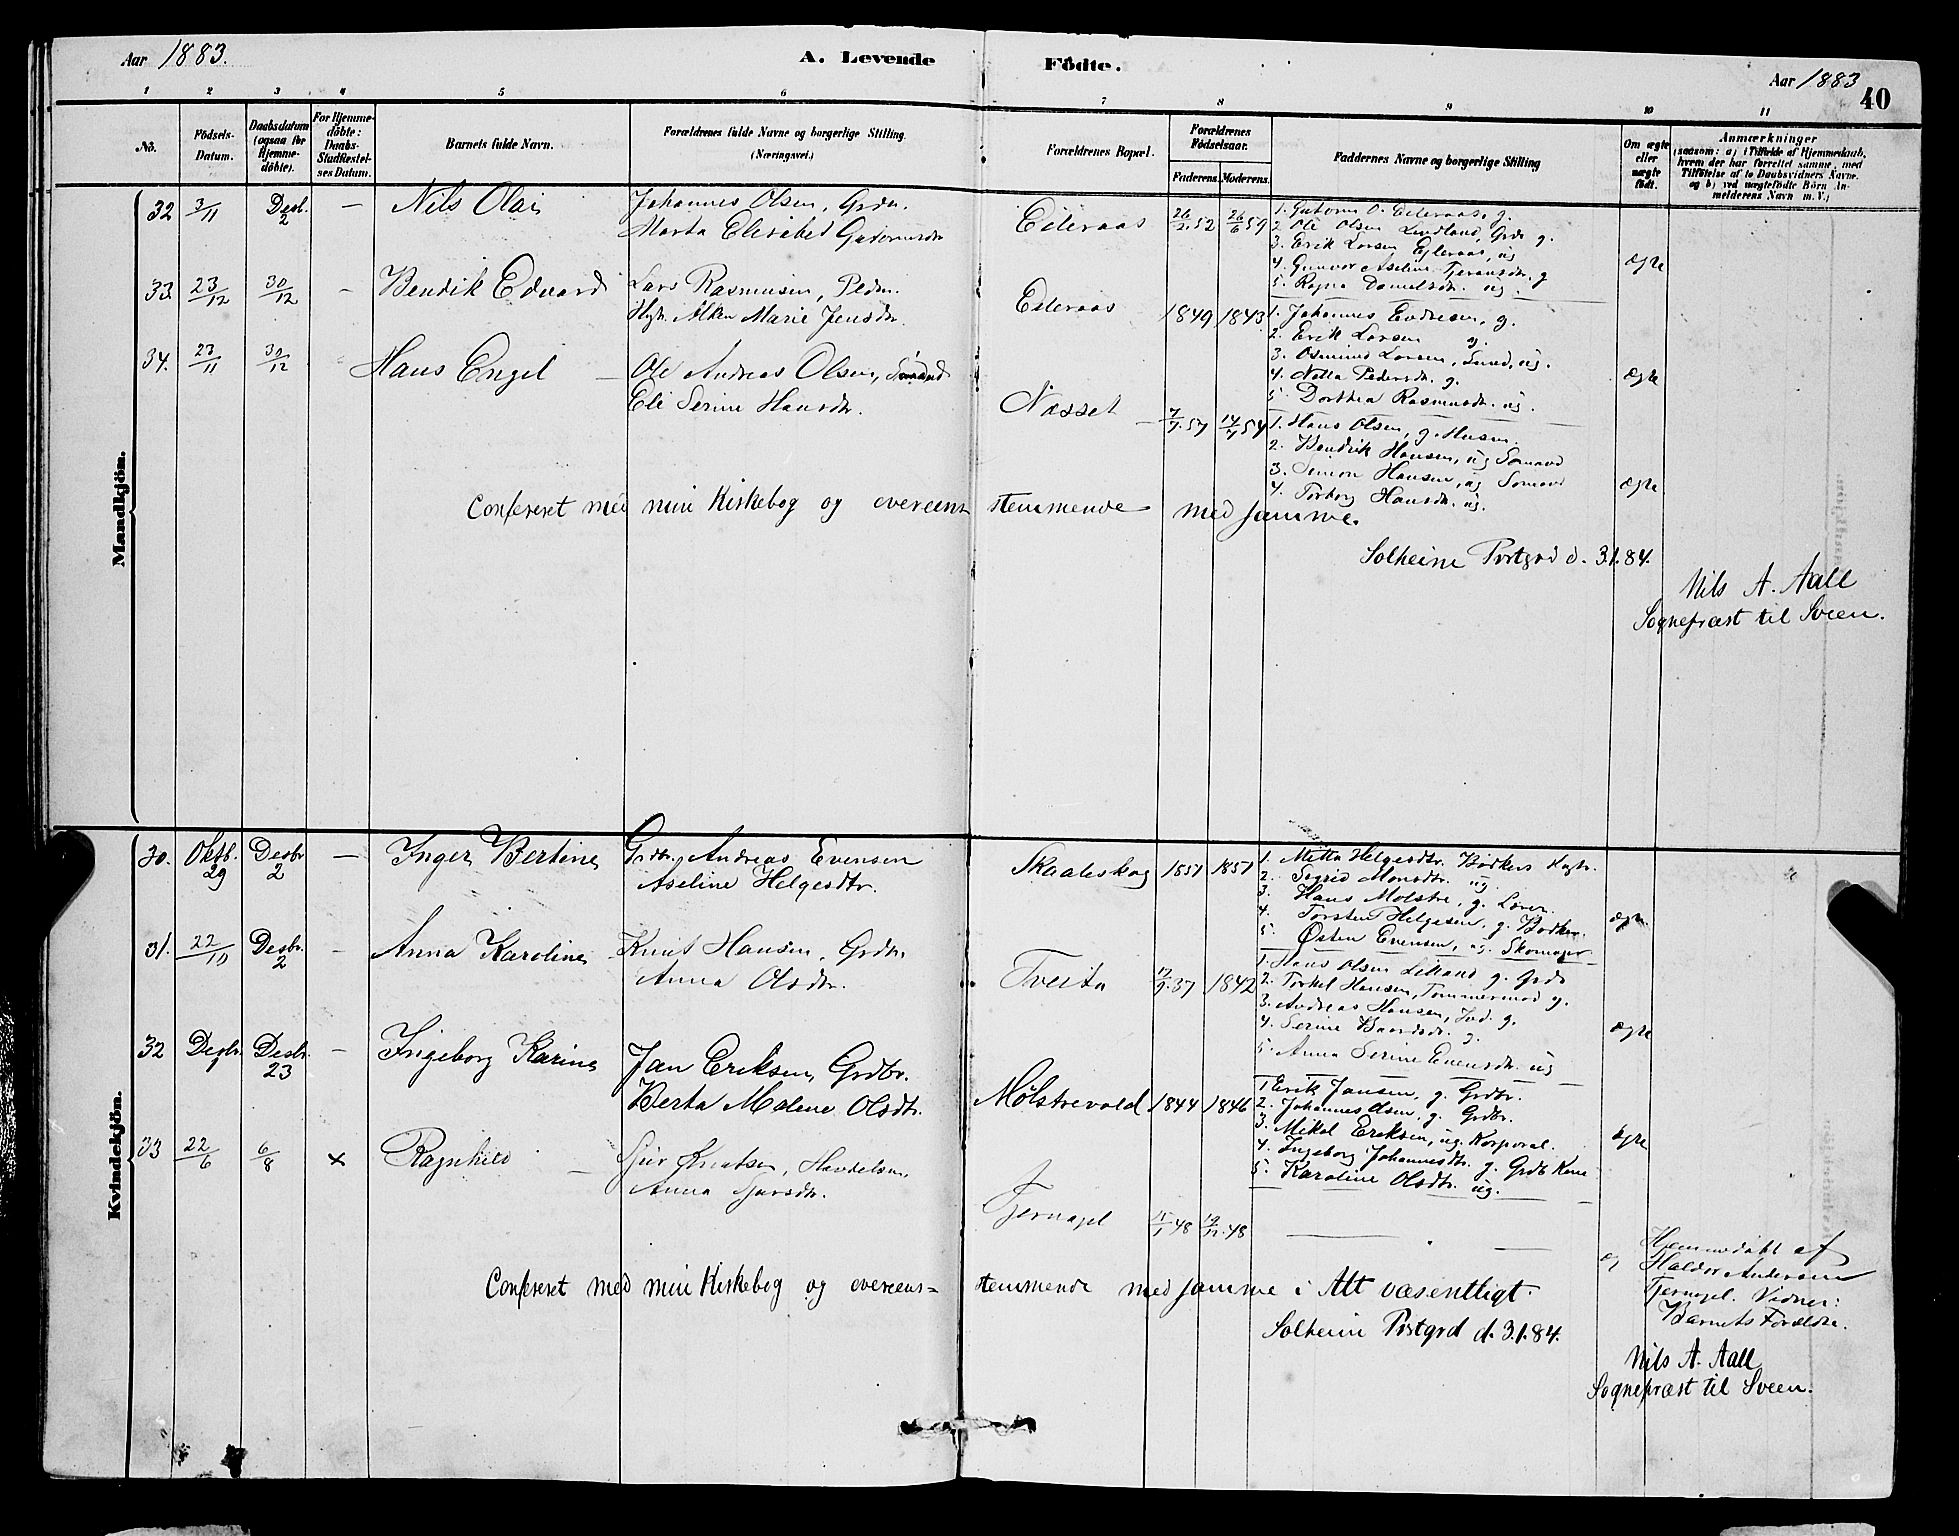 Aar 1883.
A. Levende Födte.
Aar 1883
40
1 2 3 4 5 6 7 8 9 10 11
No.
Födsels-
Datum.
Daabsdatum
(ogsaa for
Hjemme-
döbte).
For Hjemme-
döbte:
Daabs-
Stadfæstel-
ses Datum.
Barnets fulde Navn.
Forældrenes fulde Navne og borgerlige Stilling.
(Næringsvei.)
Forældrenes Bopæl.
Forældrenes
Födselsaar.
Faderens. Moderens.
Faddernes Navne og borgerlige Stilling
Om ægte
eller
uægte
födt.
Anmærkninger
(saasom: a) i Tilfælde af Hjemmedaab,
hvem der har forrettet samme, med
Tilföielse af to Daabsvidners Navne.
og b) ved uægtefödte Börn An-
melderens Navn m. V.)
Mandkjön.
32 3/11 Desb. 2 — Nils Olai
Johannes Olsen, Grdm.
Marta Elisabet Gutormsdtr
Eileraas
26/2.52 26/6 59
1. Gutorm O. Eileraas, g.
2 Ole Olsen Lindland, Grdr g.
3. Erik Larsen Eileraas, ug
4. Gunvor Aseline Tjeransdtr. g
5. Ragna Danielsdtr. ug.
ægte
33. 23/12 30/12 - Bendik Edvard
Lars Rasmusen, Pedm.
Hstr. Alken Marie Jensdtr.
Eileraas
1849 1843
1. Johannes Endresen, g.
2. Erik Larsen g.
3. Osmund Larsen, Smed, ug.
4. Netta Pedersdtr. g.
5. Dorthea Rasmusdtr. ug.
ægte
34. 23/11 30/12 Hans Engel —
Ole Andreas Olsen, Sømand
Eli Serine Hansdtr.
Næsset
7/7.57 14/7 54
1. Hans Olsen, g. Husm.
2. Bendik Hansen, ug Sømand
3. Simon Hansen, ug Sømand
4. Torborg Hansdtr. ug.
ægte
Confereret med min Kirkebog og overeens stemmende med samme.
Solheim Prstgrd d. 3.1.84.
Nils A. Aall
Sognepræst til Sveen.
Kvindekjön.
30. Oktb. 29 Desbr 2 — Inger Bertine
Grdbr. Andreas Evensen
Aseline Helgesdtr.
Skaaleskog
1857 1857
1. Metta Helgesdtr. Bødkers Hustr.
2. Sigrid Monsdtr. ug.
3. Hans Molstre, g. Lærer.
4. Torsten Helgesen, g. Bødker.
5. Østen Evensen, ug. Skomager
ægte
31. 22/10 Desbr. 2 - Anna Karoline
Knut Hansen, Grdbr
Anna Olsdtr.
Tveita
1. Hans Olsen Lilland g. Grdb
2. Torkel Hansen, Tømmermand g.
3. Andreas Hansen, Ind. g.
4. Serine Baardsdtr. g.
5. Anna Serine Evensdtr. ug
1842
ægte
32 Desbr. 1 Desbr. 23 - Ingeborg Karine
Jan Eriksen, Grdbr.
Berta Malene Olsdtr.
Mølstrevold
1844 1846
1 Erik Jansen, g. Grdbr.
2. Johannes Olsen, g. Grdbr.
3. Mikal Eriksen, ug. Korporal.
4. Ingeborg Johannesdtr. g. Grdb Kone
5. Karoline Olsdtr. ug.
ægte
33 22/6 6/8 x Ragnhild —
Sjur Knutsen, Handelsm.
Anna Sjursdtr.
Tjernagel
Hjemmedøbt af
Haldor Andersen
Tjernagel. Vidner:
Barnets Forældre.
Confereret med min Kirkebog og overeens= stemmende med samme i Alt væsentligt.
Solheim Prstgrd d. 3.1.84.
Nils A. Aall
Sognepræst til Sveen.